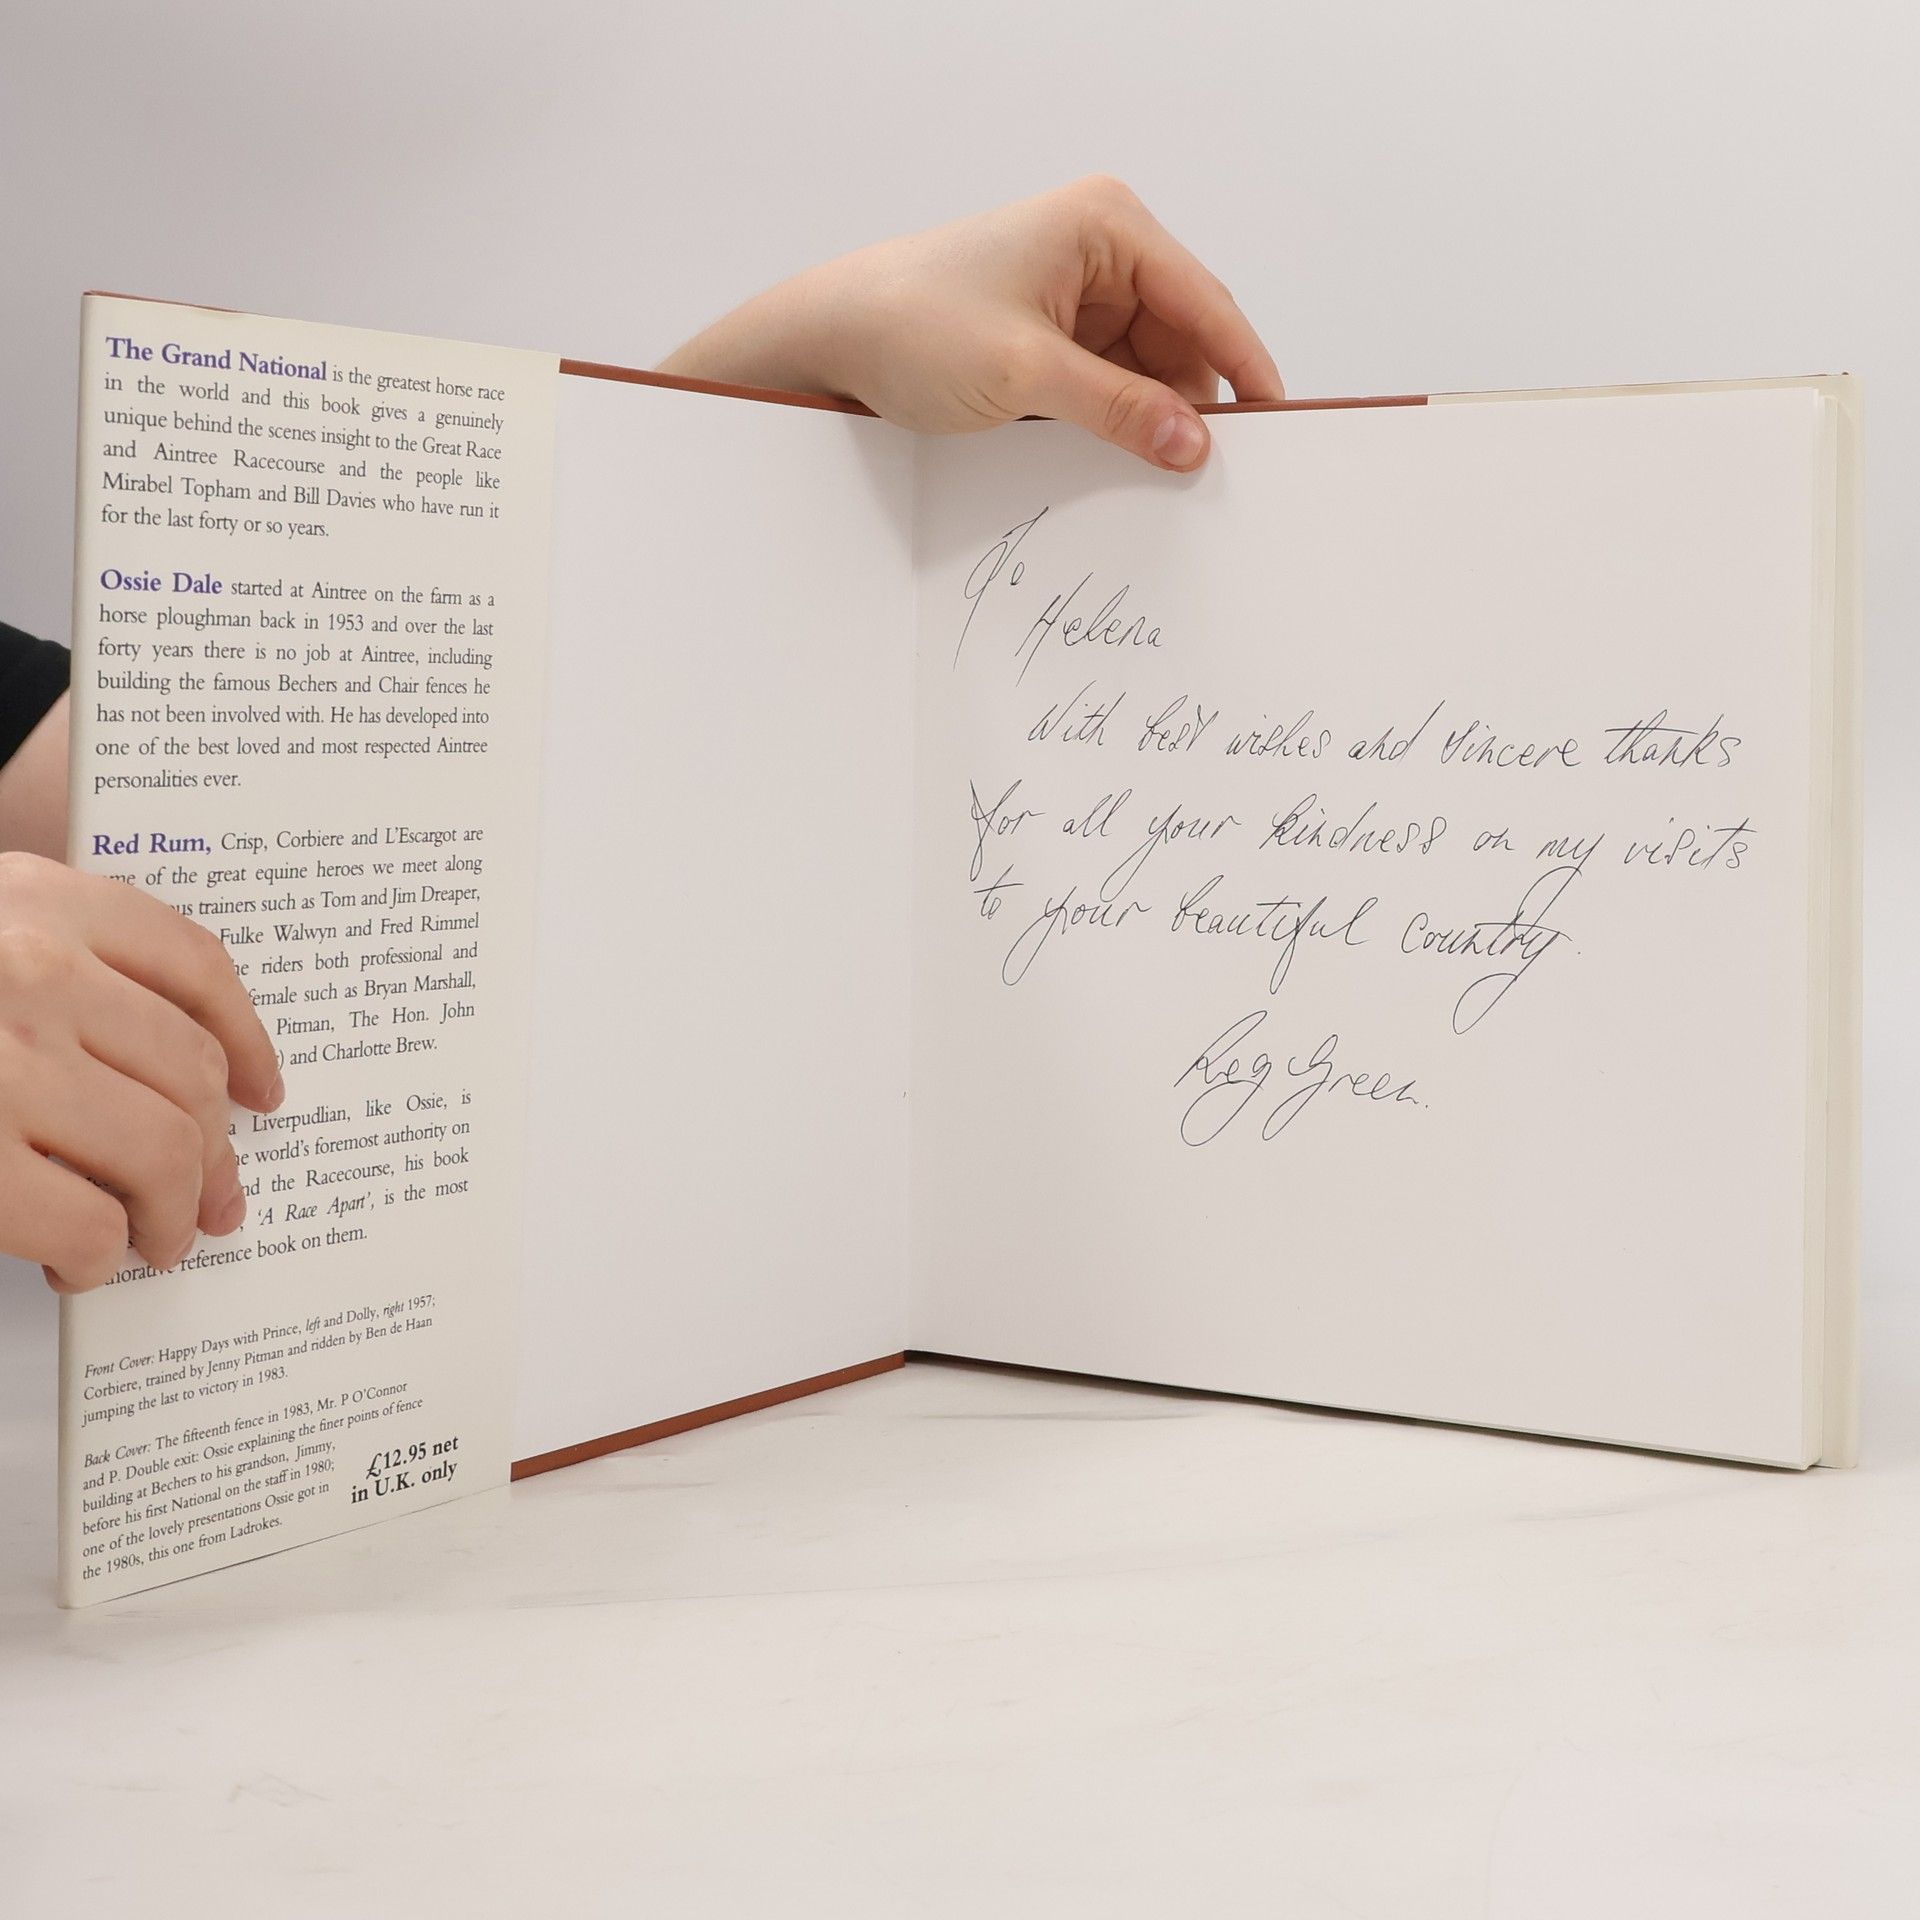 The Grand National is the greatest horse race
in the world and this book gives a genuinely
unique behind the scenes insight to the Great Race
and Aintree Racecourse and the people like
Mirabel Topham and Bill Davies who have run it
for the last forty or so years.
Ossie Dale started at Aintree on the farm as a
horse ploughman back in 1953 and over the last
forty years there is no job at Aintree, including
building the famous Bechers and Chair fences he
has not been involved with. He has developed into
one of the best loved and most respected Aintree
personalities ever.
Red Rum, Crisp, Corbiere and L'Escargot are
of the great equine heroes we meet along
trainers such as Tom and Jim Dreaper,
Fulke Walwyn and Fred Rimmel
riders both professional and
female such as Bryan Marshall,
Pitman, The Hon. John
) and Charlotte Brew.
a Liverpudlian, like Ossie, is
world's foremost authority on
the Racecourse, his book
'A Race Apart', is the most
reference book on them.
Front Cover: Happy Days with Prince, left and Dolly, right 1957;
Corbiere, trained by Jenny Pitman and ridden by Ben de Haan
jumping the last to victory in 1983.
Back Cover: The fifteenth fence in 1983, Mr. P O'Connor
and P. Double exit: Ossie explaining the finer points of fence
building at Bechers to his grandson, Jimmy,
before his first National on the staff in 1980;
one of the lovely presentations Ossie got in
the 1980s, this one from Ladrokes.
£12.95 net
in U.K. only
To
Helena
With best wishes and sincere thanks
for all your kindness on my visits
to your beautiful country.
Reg Green.